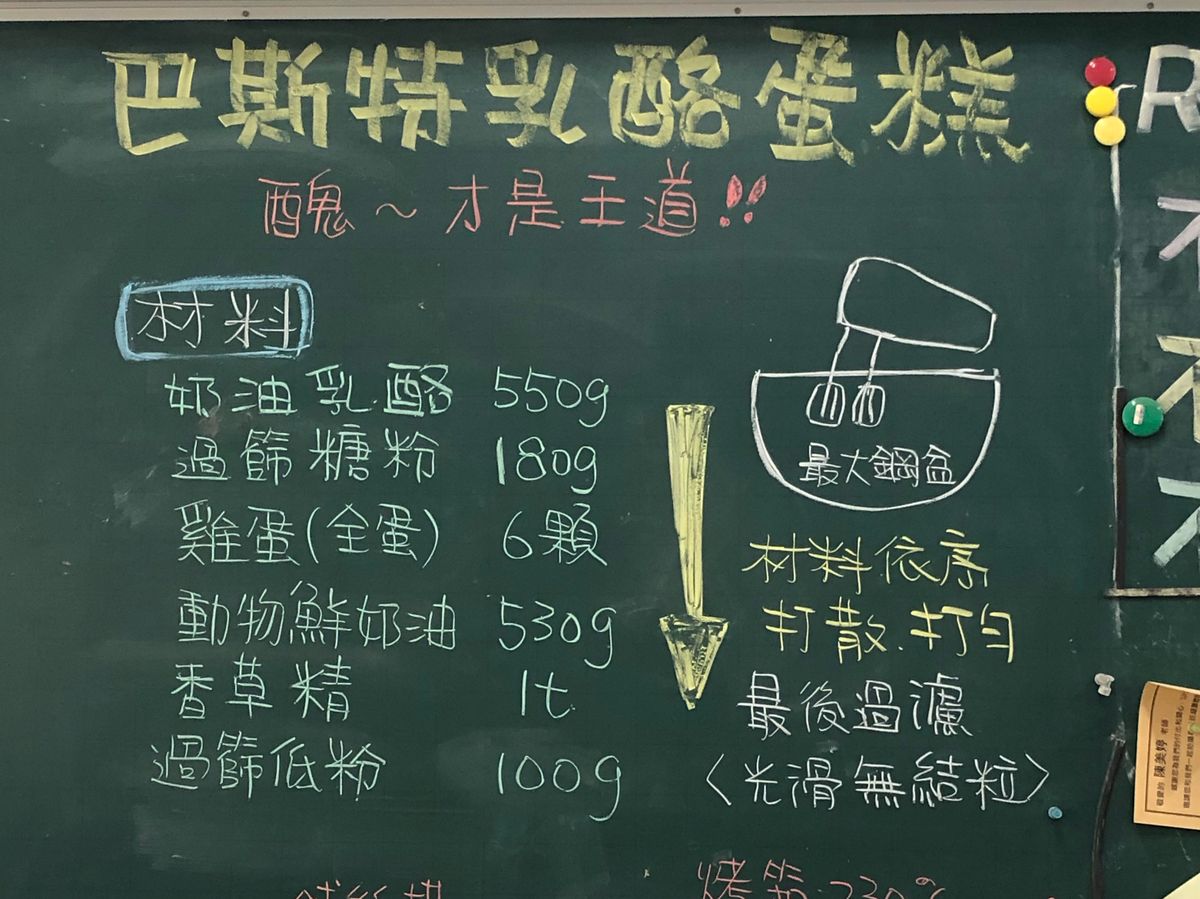 巴斯特乳酪蛋糕
醜～才是王道!!
材料
奶油乳酪 550g
過篩糖粉 180g
雞蛋(全蛋) 6顆
動物鮮奶油 530g
香草精 1t
過篩低粉 100g
最大鋼盆
材料依序
打散.打勻
最後過濾
〈光滑無結粒〉
R
敬愛的 陳美婷 老師